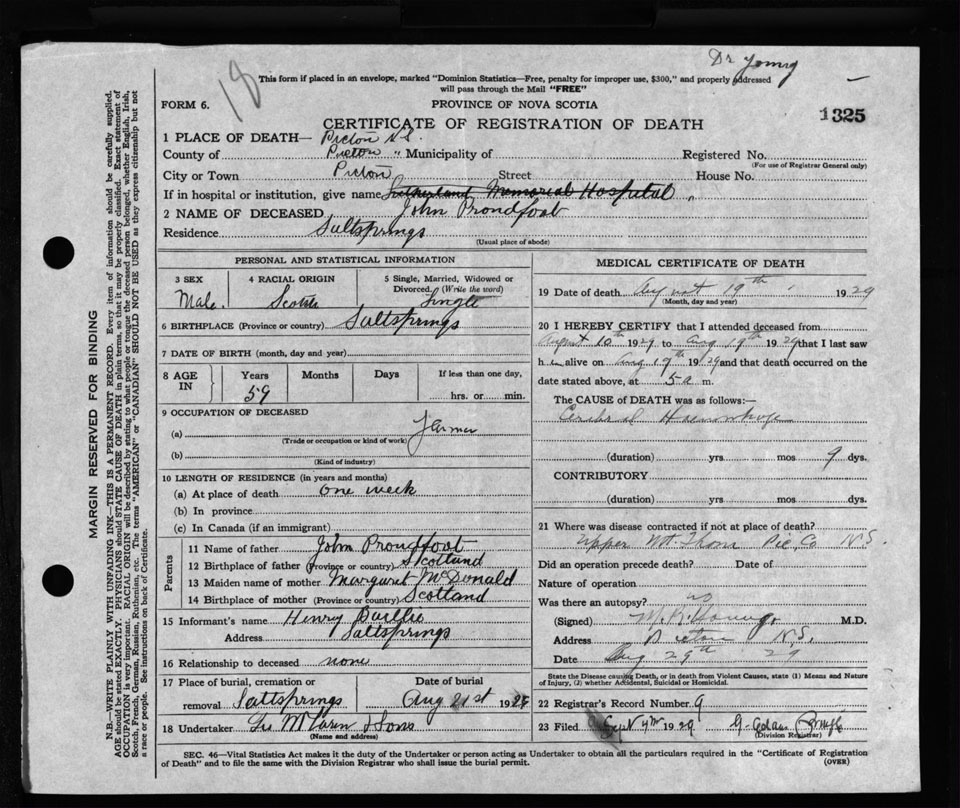 18
Dr Young
This form if placed in an envelope, marked "Dominion Statistics—Free, penalty for improper use, $300," and properly addressed
will pass through the Mail "FREE"
FORM 6.
PROVINCE OF NOVA SCOTIA
1325
CERTIFICATE OF REGISTRATION OF DEATH
1 PLACE OF DEATH— Pictou N.S.
County of Pictou " Municipality of Registered No.
(For use of Registrar General only)
City or Town Pictou Street House No.
If in hospital or institution, give name Sutherland Memorial Hospital
2 NAME OF DECEASED John Proudfoot
Residence Saltsprings
(Usual place of abode)
PERSONAL AND STATISTICAL INFORMATION
3 SEX 4 RACIAL ORIGIN 5 Single, Married, Widowed or
Divorced. (Write the word)
Male. Scotch Single
6 BIRTHPLACE (Province or country) Saltsprings
7 DATE OF BIRTH (month, day and year)
8 AGE IN Years Months Days If less than one day,
59 hrs. or min.
9 OCCUPATION OF DECEASED
(a) Farmer
(Trade or occupation or kind of work)
(b)
(Kind of industry)
10 LENGTH OF RESIDENCE (in years and months)
(a) At place of death one week
(b) In province
(c) In Canada (if an immigrant)
Parents
11 Name of father John Proudfoot
12 Birthplace of father (Province or country) Scotland
13 Maiden name of mother Margaret McDonald
14 Birthplace of mother (Province or country) Scotland
15 Informant's name Henry Baillie
Address Saltsprings
16 Relationship to deceased none
17 Place of burial, cremation or Date of burial
removal Saltsprings Aug 21st 1929
18 Undertaker Geo McLaren & Sons
(Name and address)
MEDICAL CERTIFICATE OF DEATH
19 Date of death August 19th 1929
(Month, day and year)
20 I HEREBY CERTIFY that I attended deceased from
August 10th 1929 to Aug 19th 1929 that I last saw
him alive on Aug 19th 1929 and that death occurred on the
date stated above, at 5 a m.
The CAUSE OF DEATH was as follows:—
Cerebral Haemorrhage
(duration) yrs. mos 9 dys.
CONTRIBUTORY
(duration) yrs. mos dys.
21 Where was disease contracted if not at place of death?
Upper Mt. Thom Pic. Co N.S.
Did an operation precede death? Date of
Nature of operation
Was there an autopsy? no
(Signed) Young M.D.
Address Pictou N.S.
Date Aug 29th 29
State the Disease causing Death, or in death from Violent Causes, state (1) Means and Nature
of Injury, (2) whether Accidental, Suicidal or Homicidal.
22 Registrar's Record Number 9
23 Filed Sept 1929 G.
(Division Registrar)
SEC. 46—Vital Statistics Act makes it the duty of the Undertaker or person acting as Undertaker to obtain all the particulars required in the "Certificate of Registration
of Death" and to file the same with the Division Registrar who shall issue the burial permit.
(OVER)
MARGIN RESERVED FOR BINDING
N.B.—WRITE PLAINLY WITH UNFADING INK—THIS IS A PERMANENT RECORD. Every item of information should be carefully supplied.
AGE should be stated EXACTLY. PHYSICIANS should STATE CAUSE OF DEATH in plain terms, so that it may be properly classified. Exact statement of
OCCUPATION is very important. RACIAL ORIGIN will be described by stating to what people or tongue the deceased person belonged, whether English, Irish,
Scotch, French, German, Russian, Ruthenian, etc. The terms "AMERICAN" or "CANADIAN" SHOULD NOT BE USED as they express citizenship but not
a race or people. See instructions on back of Certificate.